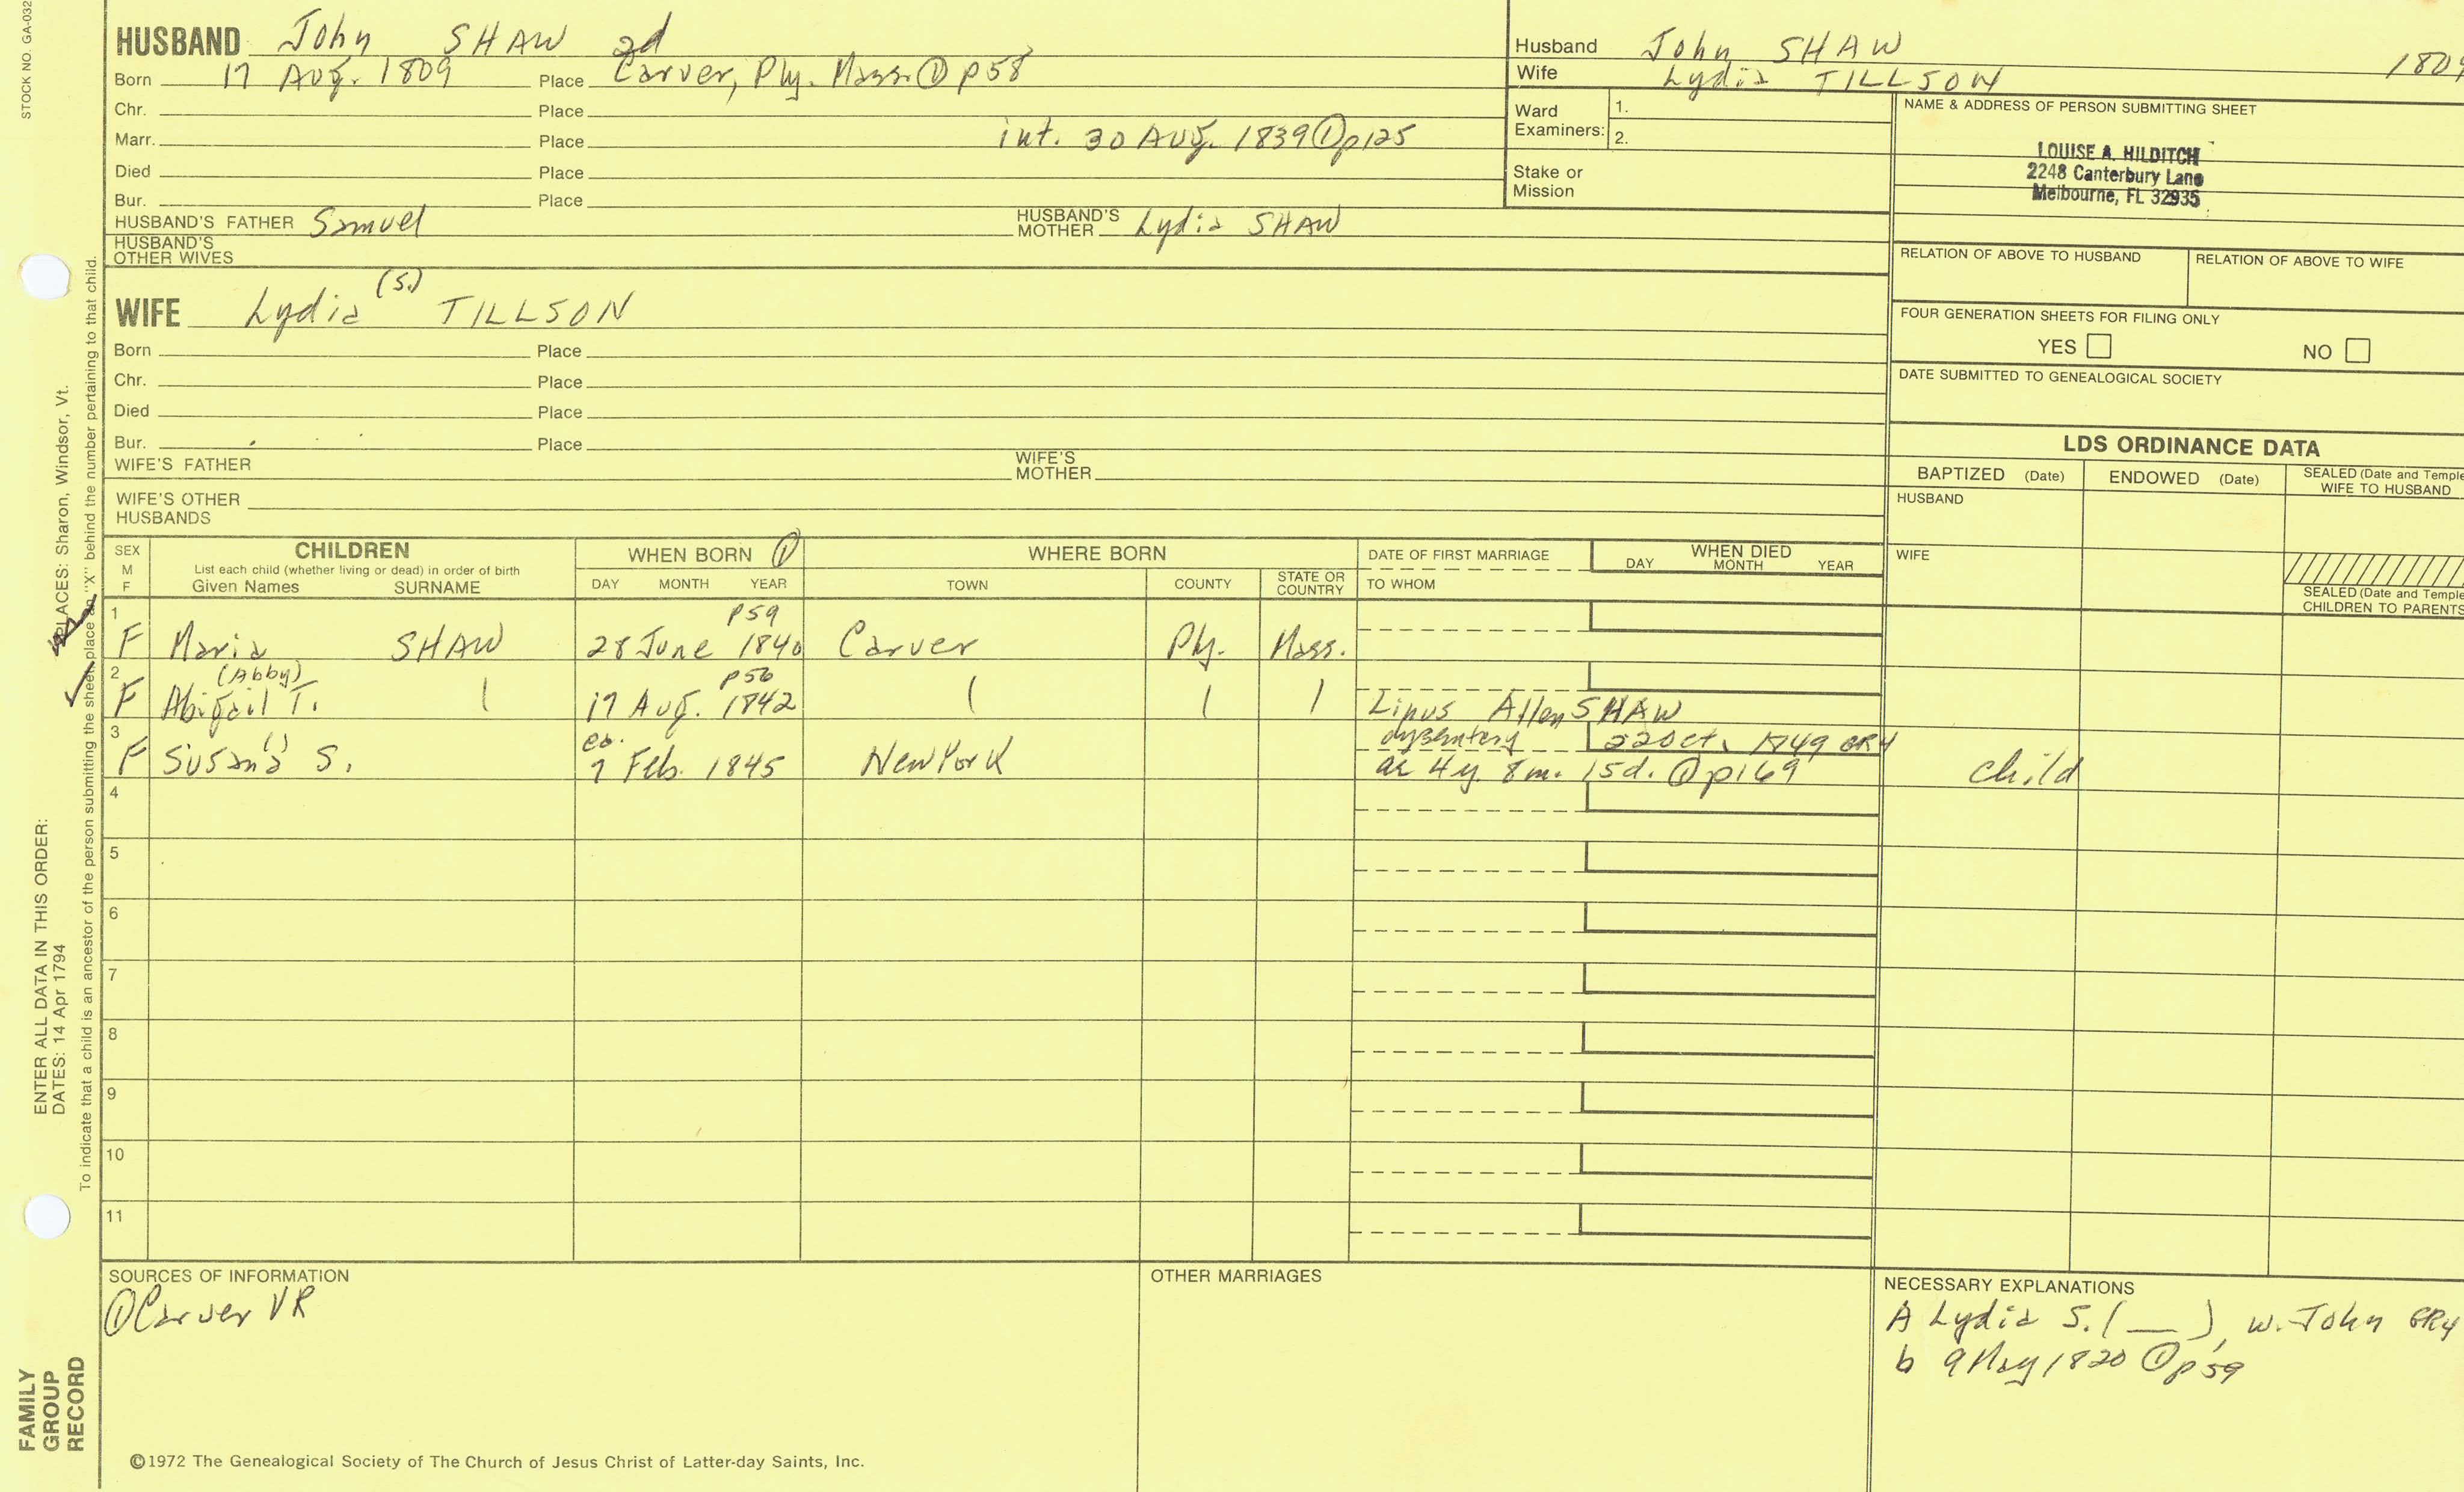 STOCK NO. GA-032
HUSBAND John SHAW 2d
Born 17 Aug. 1809 Place Carver, Ply. Mass. ① p58
Chr. Place
Marr. Place int. 30 Aug. 1839 ① p125
Died Place
Bur. Place
HUSBAND'S FATHER Samuel HUSBAND'S MOTHER Lydia SHAW
HUSBAND'S OTHER WIVES
(S.)
WIFE Lydia TILLSON
Born Place
Chr. Place
Died Place
Bur. Place
WIFE'S FATHER WIFE'S MOTHER
WIFE'S OTHER HUSBANDS
Husband John SHAW 1809
Wife Lydia TILLSON
Ward Examiners: 1.
2.
Stake or Mission
NAME & ADDRESS OF PERSON SUBMITTING SHEET
LOUISE A. HILDITCH
2248 Canterbury Lane
Melbourne, FL 32935
RELATION OF ABOVE TO HUSBAND RELATION OF ABOVE TO WIFE
FOUR GENERATION SHEETS FOR FILING ONLY
YES NO
DATE SUBMITTED TO GENEALOGICAL SOCIETY
LDS ORDINANCE DATA
BAPTIZED (Date) ENDOWED (Date) SEALED (Date and Temple
WIFE TO HUSBAND
HUSBAND
WIFE
SEALED (Date and Temple
CHILDREN TO PARENTS
SEX M F
CHILDREN
List each child (whether living or dead) in order of birth
Given Names SURNAME
WHEN BORN ①
DAY MONTH YEAR
WHERE BORN
TOWN COUNTY STATE OR COUNTRY
DATE OF FIRST MARRIAGE
TO WHOM
WHEN DIED
DAY MONTH YEAR
1 p59
F Maria SHAW 28 June 1840 Carver Ply. Mass.
2 (Abby) p56
F Abigail T. 17 Aug. 1842 Linus Allen SHAW
3 () ca. dysentery 22 Oct. 1849 GR4
F Susana S. 7 Feb. 1845 New York ae 4y. 8m. 15d. ① p169 child
4
5
6
7
8
9
10
11
SOURCES OF INFORMATION
① Carver VR
OTHER MARRIAGES
NECESSARY EXPLANATIONS
A Lydia S. (__), w. John GR4
b 9 May 1820 ① p59
©1972 The Genealogical Society of The Church of Jesus Christ of Latter-day Saints, Inc.
ENTER ALL DATA IN THIS ORDER:
DATES: 14 Apr 1794 PLACES: Sharon, Windsor, Vt.
To indicate that a child is an ancestor of the person submitting the sheet, place an "X" behind the number pertaining to that child.
FAMILY
GROUP
RECORD